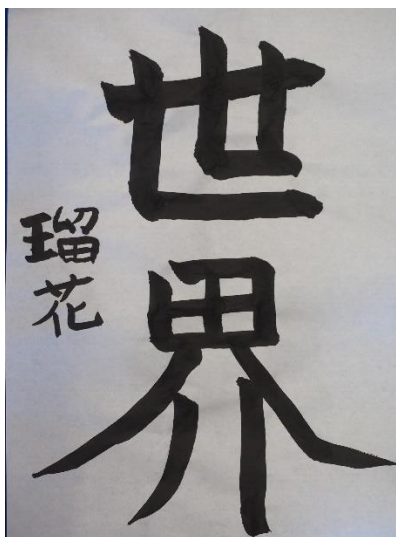 世界
瑠花